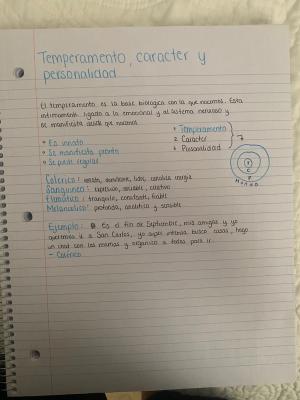 Temperamento, caracter y
personalidad
El temperamento es la base biologica con la que nacemos. Esta
intimamente ligado a lo emocional y al sistema nervioso y
se manifiesta desde que nacemos
• Es innato
• Se manifiesta pronto
• Se puede regular
1 Temperamento
2 Caracter
3 Personalidad
T
C
P
Mundo
Colerico: lider, energia
Sanguineo: expresivo, sociable,
Flematico: tranquilo, constante,
Melancolico: profundo, analitico y sensible
Ejemplo: Es el fin de Septiembre, mis amigas y yo
queremos ir a San Carlos, yo super intensa busco casas, hago
un chat con las mamas y organizo a todas para ir.
- Colerico